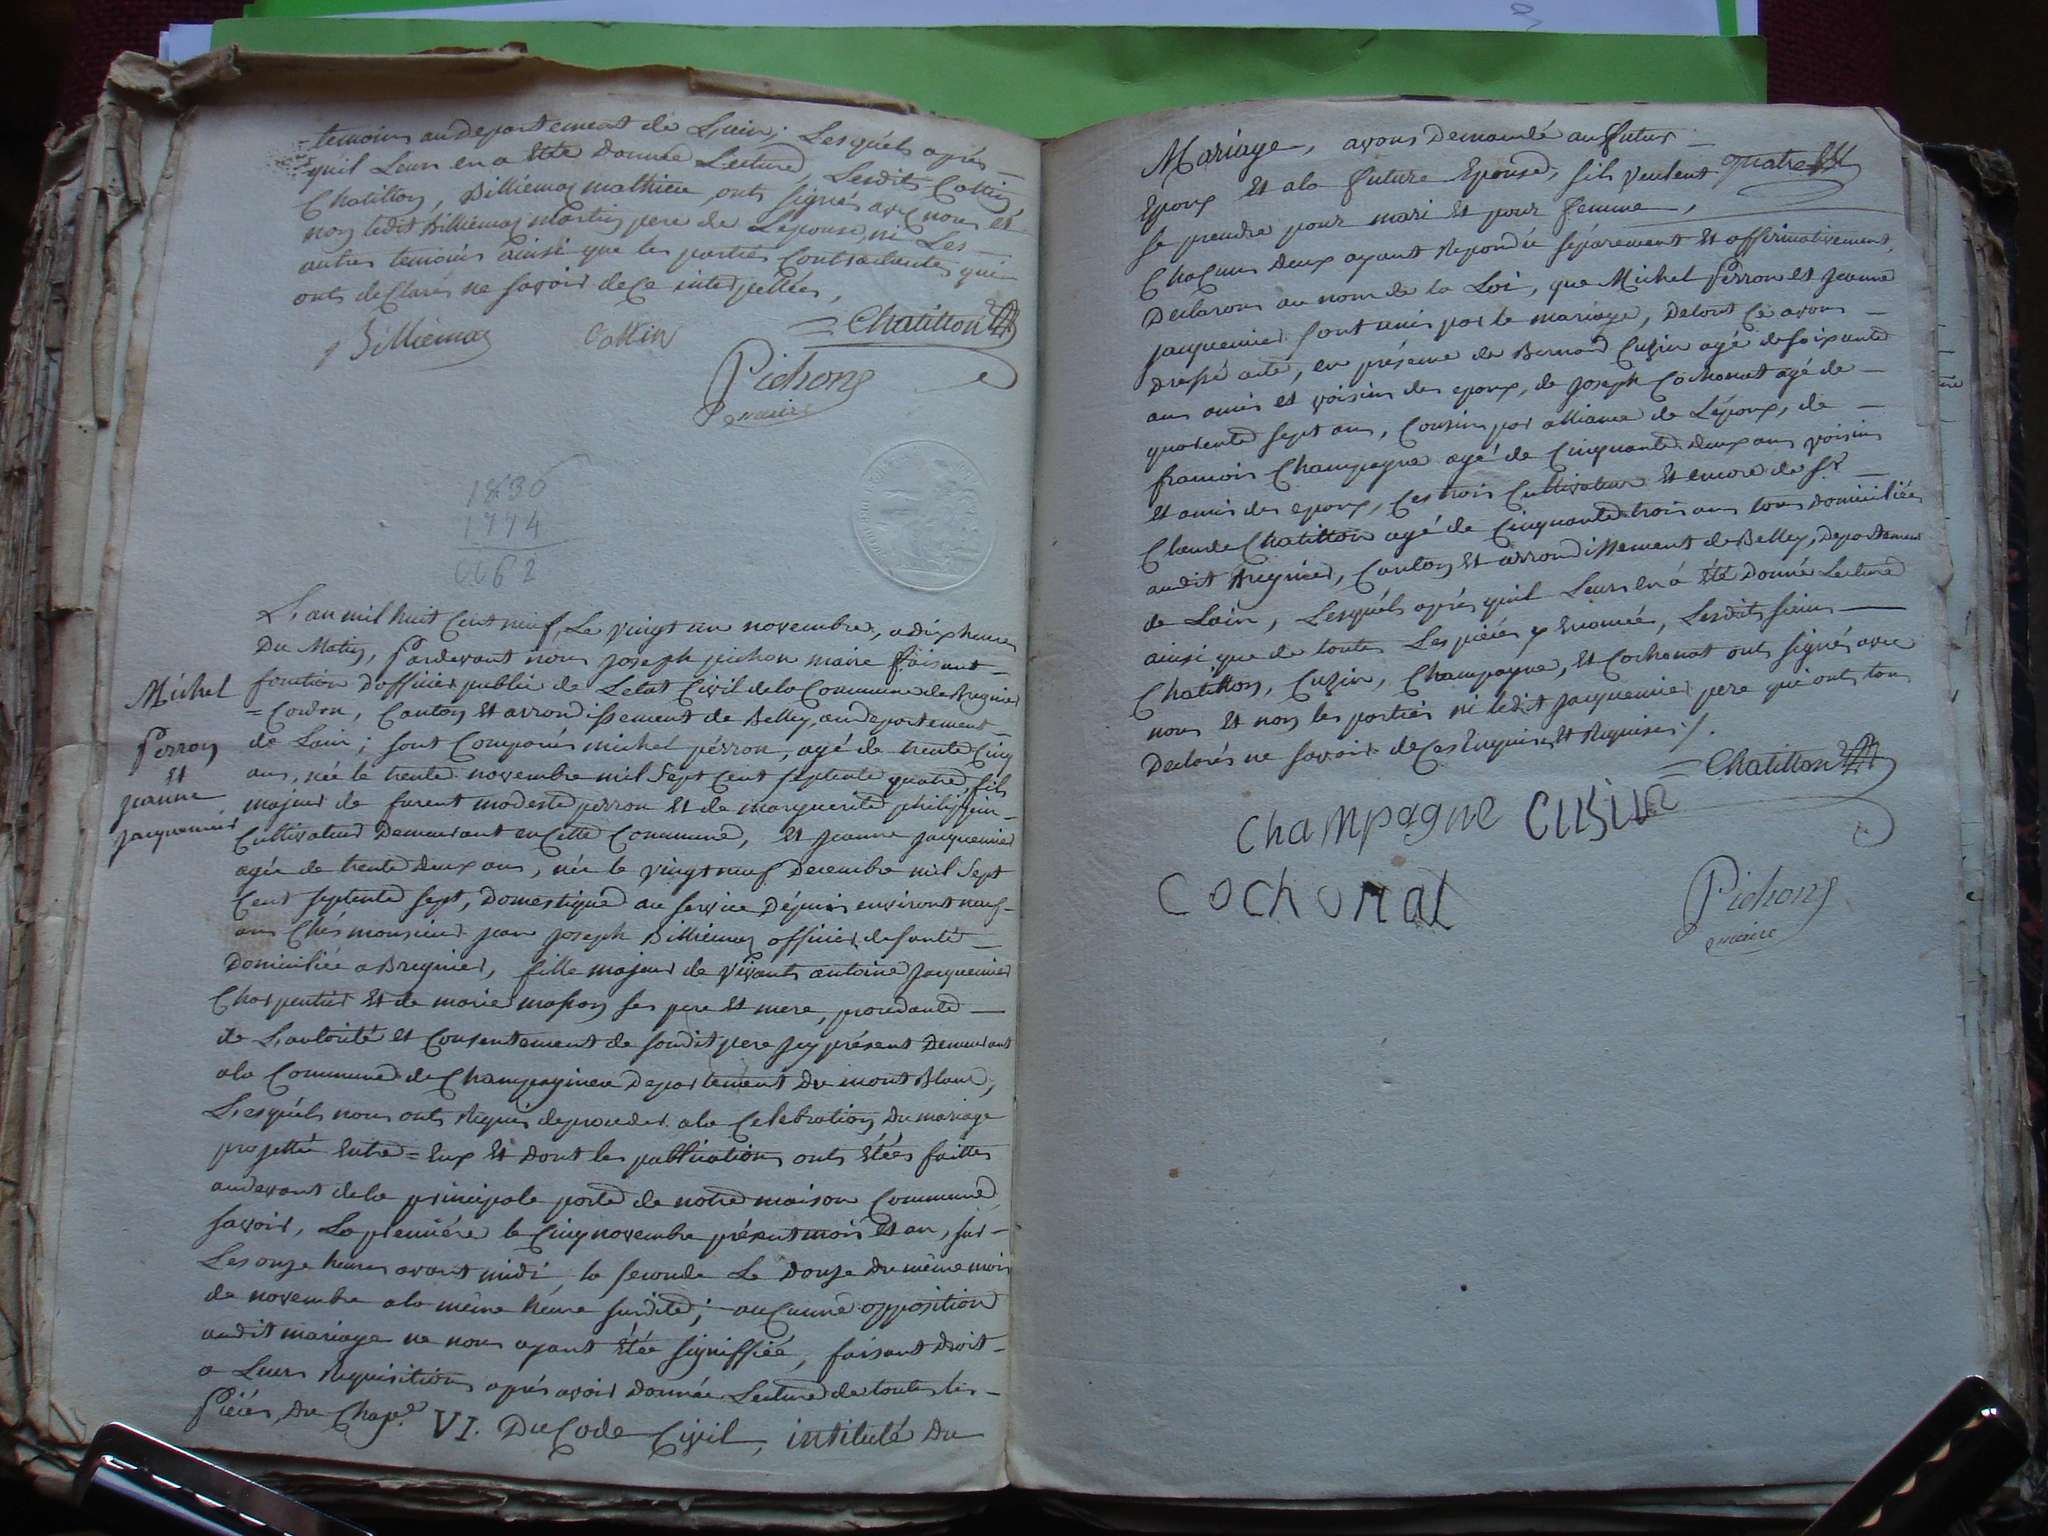 temoins au departement de Lain; Lesquéls aprés
quil Leur en a Eté donnée Lecture, Lesdits Cottin
Chatillon, Billiemaz mathieu, onts signés avec nous et
non ledit Billiemaz Martin pere de L'epouse, ni Les
autres temoins ainsi que les parties Contractantes qui
onts declarés ne savoir de ce interpellés,
Billiemaz Cottin Chatillon
Pichon
maire
1836
1774
L'an mil huit Cent neuf, Le vingt un novembre, a dix heures
Du Matin, pardevant nous Joseph pichon maire faisant
fonction d'officier public de Letat Civil de la Commune de Bregnier
= Cordon, Canton Et arrondissement de Belley, au departement
de Lain; sont Comparus michel perron, agé de trente Cinq
ans, née le trente novembre mil Sept Cent septente quatre, fils
majeur de furent modeste perron Et de marguerite philippin
Cultivateur Demeurant en Cette Commune, Et Jeanne Jacquemier
agée de trente deux ans, née le vingt neuf Decembre mil Sept
Cent septente sept, Domestique au service Dépuis environt neuf
ans Chés monsieur jean Joseph Billiemaz officier de santé
Domiciliée a Bregnier, fille majeur de vivants antoine Jacquemier
Charpentier Et de marie masson ses pere Et mere, procedante
de L'autorité et Consentement de sondit pere Icy présent Demeurant
a la Commune de Champagneux Departement du mont Blanc,
Lesquéls nous onts Requis de proceder a la Celebration du mariage
projetté Entre = Eux Et dont les publications onts Etées faittes
audevant de la principale porte de notre maison Commune
savoir, La premiére le Cinq novembre présent mois Et an, sur
Les onze heures avant midi la seconde Le Douze du même mois
de novembre a la même héure susdite; aucunne opposition
audit mariage ne nous ayant Etée signiffiée, faisant droit
a Leurs Requisitions aprés avoir donnée Lecture de toutes les
Piéces, Du Chap.e VI. Du Code Civil, intitulé Du
Michel
Perron
Et
Jeanne
Jacquemier
Mariage, avons Demandé au futur
Epoux Et a la future Epouse, sils veulent quatre
se prendre pour mari Et pour femme,
Chacuns deux ayant Repondu séparement Et affirmativement,
Declarons au nom de la Loi, que Michel Perron et Jeanne
Jacquemier sont unis par le mariage, de tout Ce avons
Dressé acte, en présence de Bernard Cuzin agé de soixante
ans amis et voisins des epoux, de Joseph Cochonat agé de
quarente sept ans, Cousin par alliance de L'époux, de
francois Champagne agé de Cinquante deux ans voisin
Et amis des epoux, Ces trois Cultivateur Et encore de Sr
Claude Chatillon agé de Cinquante trois ans tous Domiciliés
audit Bregnier, Canton Et arrondissement de Belley, Departement
de Lain, Lesquéls aprés quil Leurs en á Eté donné Lecture
ainsi que de toutes Les piéces y Enoncée, Lesdits sieurs
Chatillon, Cuzin, Champagne, Et Cochonat onts signés avec
nous Et non les parties ni ledit Jacquemier pere qui onts tous
Declarés ne savoir de Ces Enquis Et Requises /.
Chatillon
Champagne Cusin
Cochonat
Pichon
maire